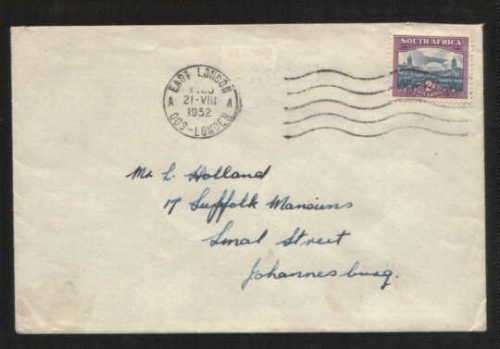 SOUTH AFRICA
2D
EAST LONDON
A A
21-VIII
1952
OOS-LONDEN
Mr L. Holland
17 Suffolk Mansions
Smal Street
Johannesburg.